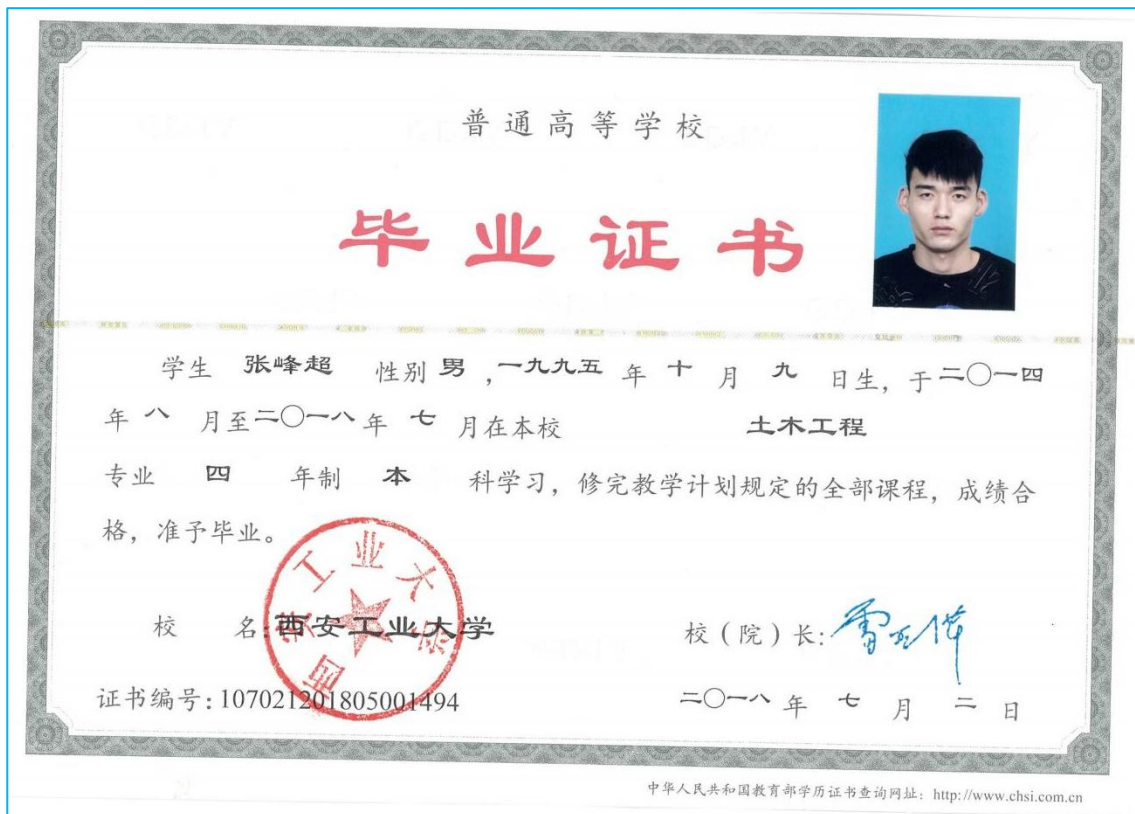 普通高等学校
毕业证书
学生 张峰超 性别 男 ,一九九五 年 十 月 九 日生, 于二〇一四
年 八 月至二〇一八年 七 月在本校 土木工程
专业 四 年制 本 科学习, 修完教学计划规定的全部课程, 成绩合
格, 准予毕业。
西安工业大学
校 名:西安工业大学 校(院)长:
证书编号:107021201805001494 二〇一八 年 七 月 二 日
中华人民共和国教育部学历证书查询网址: http://www.chsi.com.cn